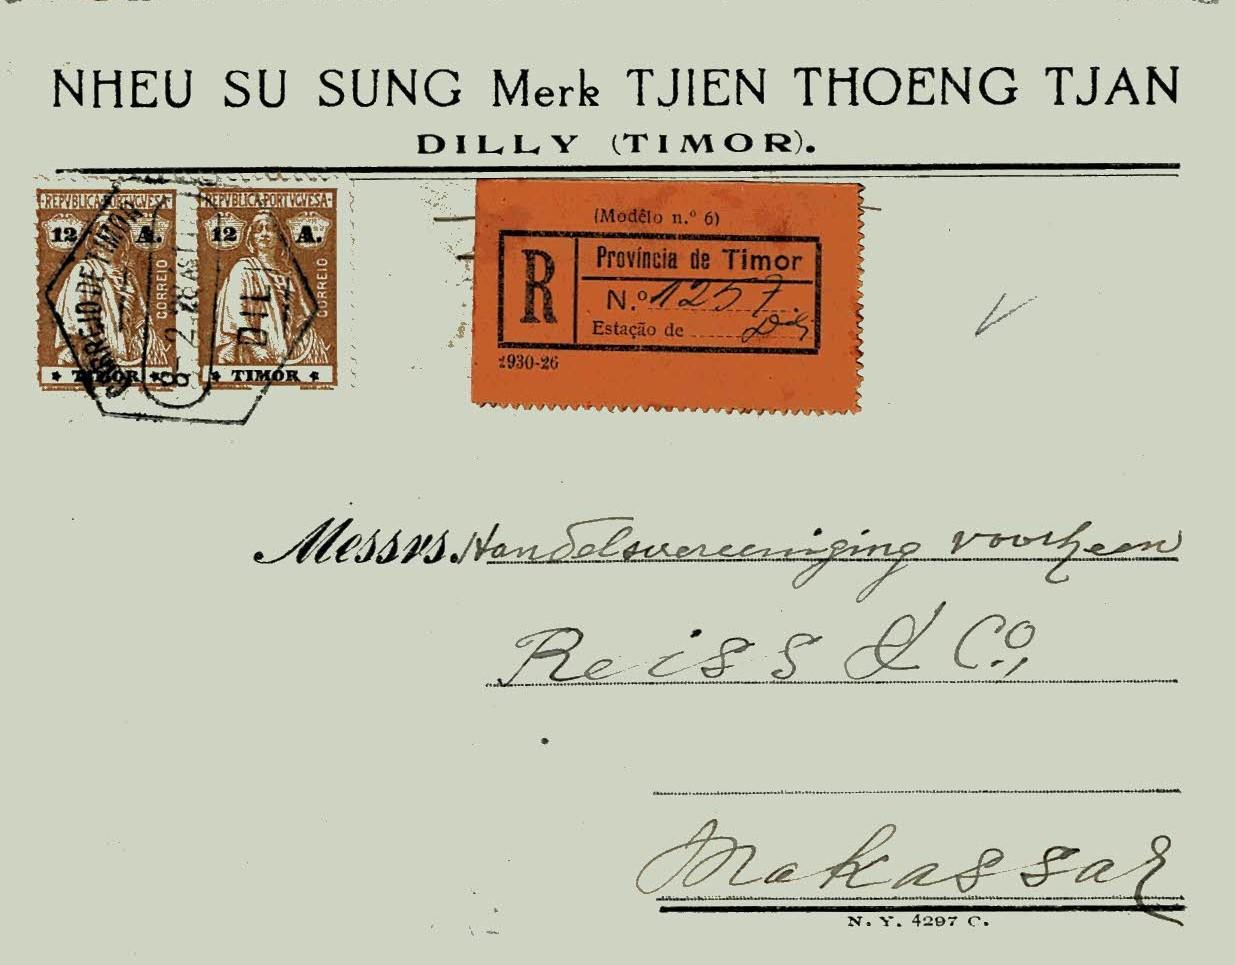 NHEU SU SUNG Merk TJIEN THOENG TJAN
DILLY (TIMOR).
REPVBLICA PORTVGVESA
12 A.
CORREIO
TIMOR
REPVBLICA PORTVGVESA
12 A.
CORREIO
TIMOR
CORREIO DE TIMOR
DILI
(Modêlo n.º 6)
R
Província de Timor
N.º 1257
Estação de
1930-26
Messrs. Handelsvereeniging voorheen
Reiss & Co,
Makassar
N. Y. 4297 C.